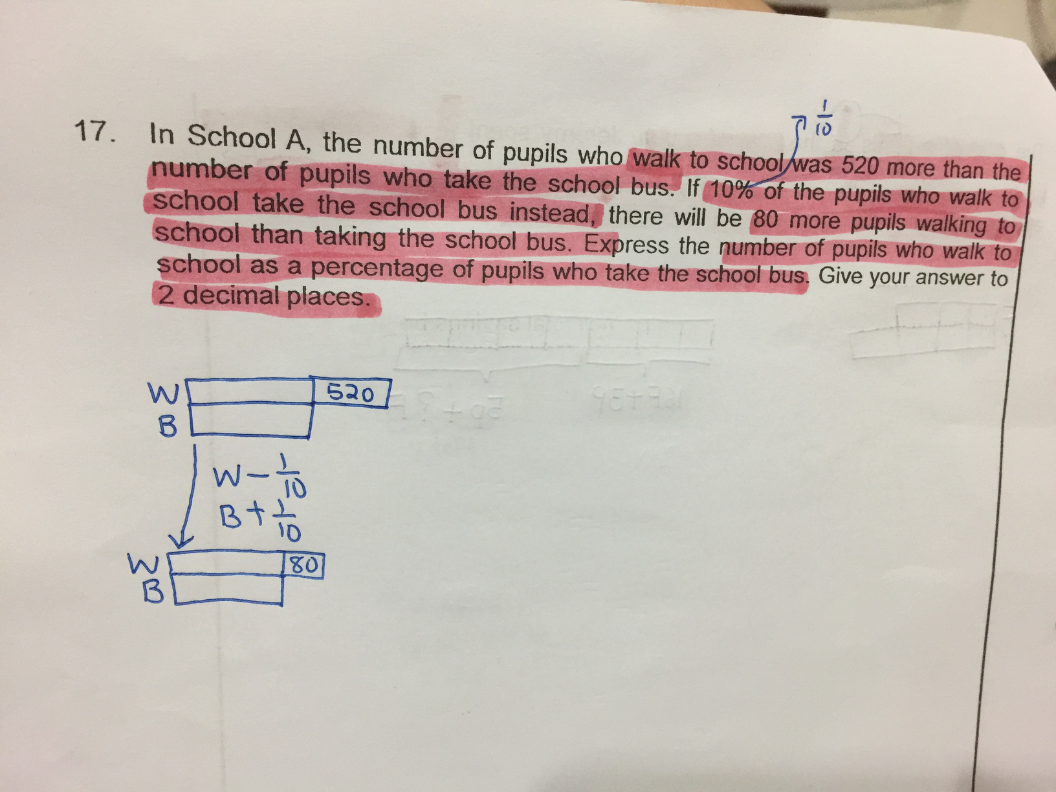 1/10
17. In School A, the number of pupils who walk to school was 520 more than the
number of pupils who take the school bus. If 10% of the pupils who walk to
school take the school bus instead, there will be 80 more pupils walking to
school than taking the school bus. Express the number of pupils who walk to
school as a percentage of pupils who take the school bus. Give your answer to
2 decimal places.
W 520
B
W - 1/10
B + 1/10
W 80
B